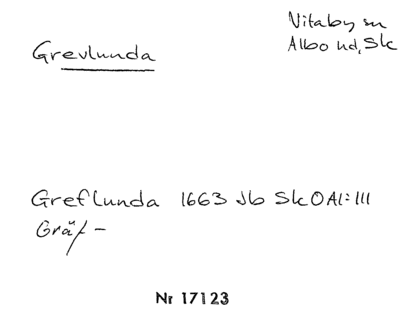 Grevlunda
Vitaby sn
Albo hd, Sk
Greflunda 1663 Jb SkOAl:III
Gräf-
Nr 17123